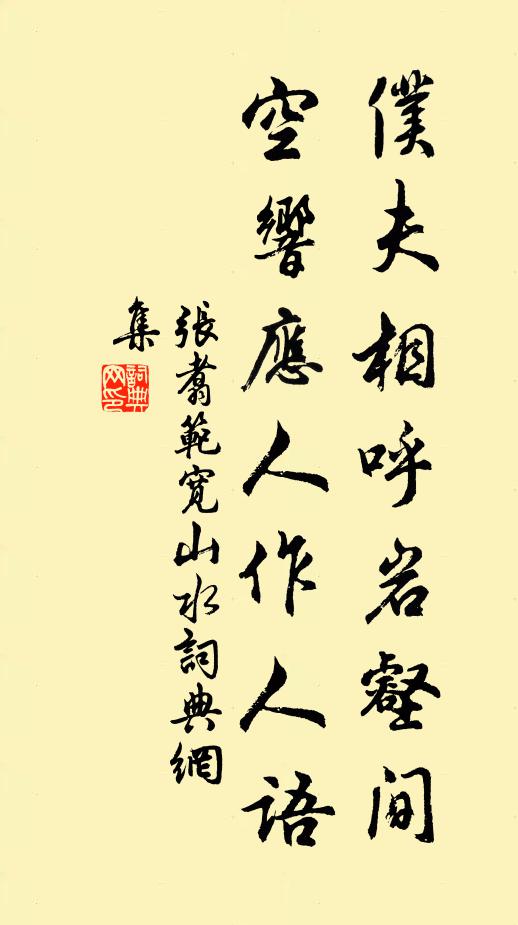 僕夫相呼岩壑間
空響應人作人語
張翥範寬山水詞典網
集
詞典
网印